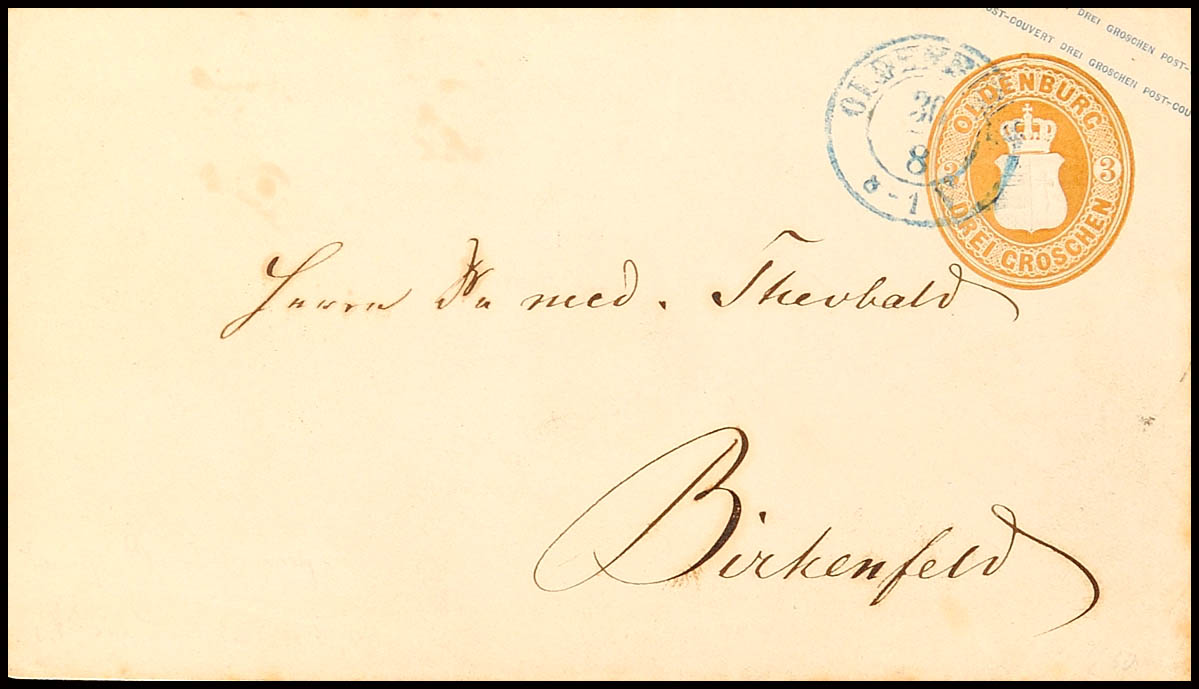 DREI GROSCHEN POST-
POST-COUVERT DREI GROSCHEN POST-COU
OLDENBURG
3 3
DREI GROSCHEN
8
Herrn Dr med. Theobald
Birkenfeld